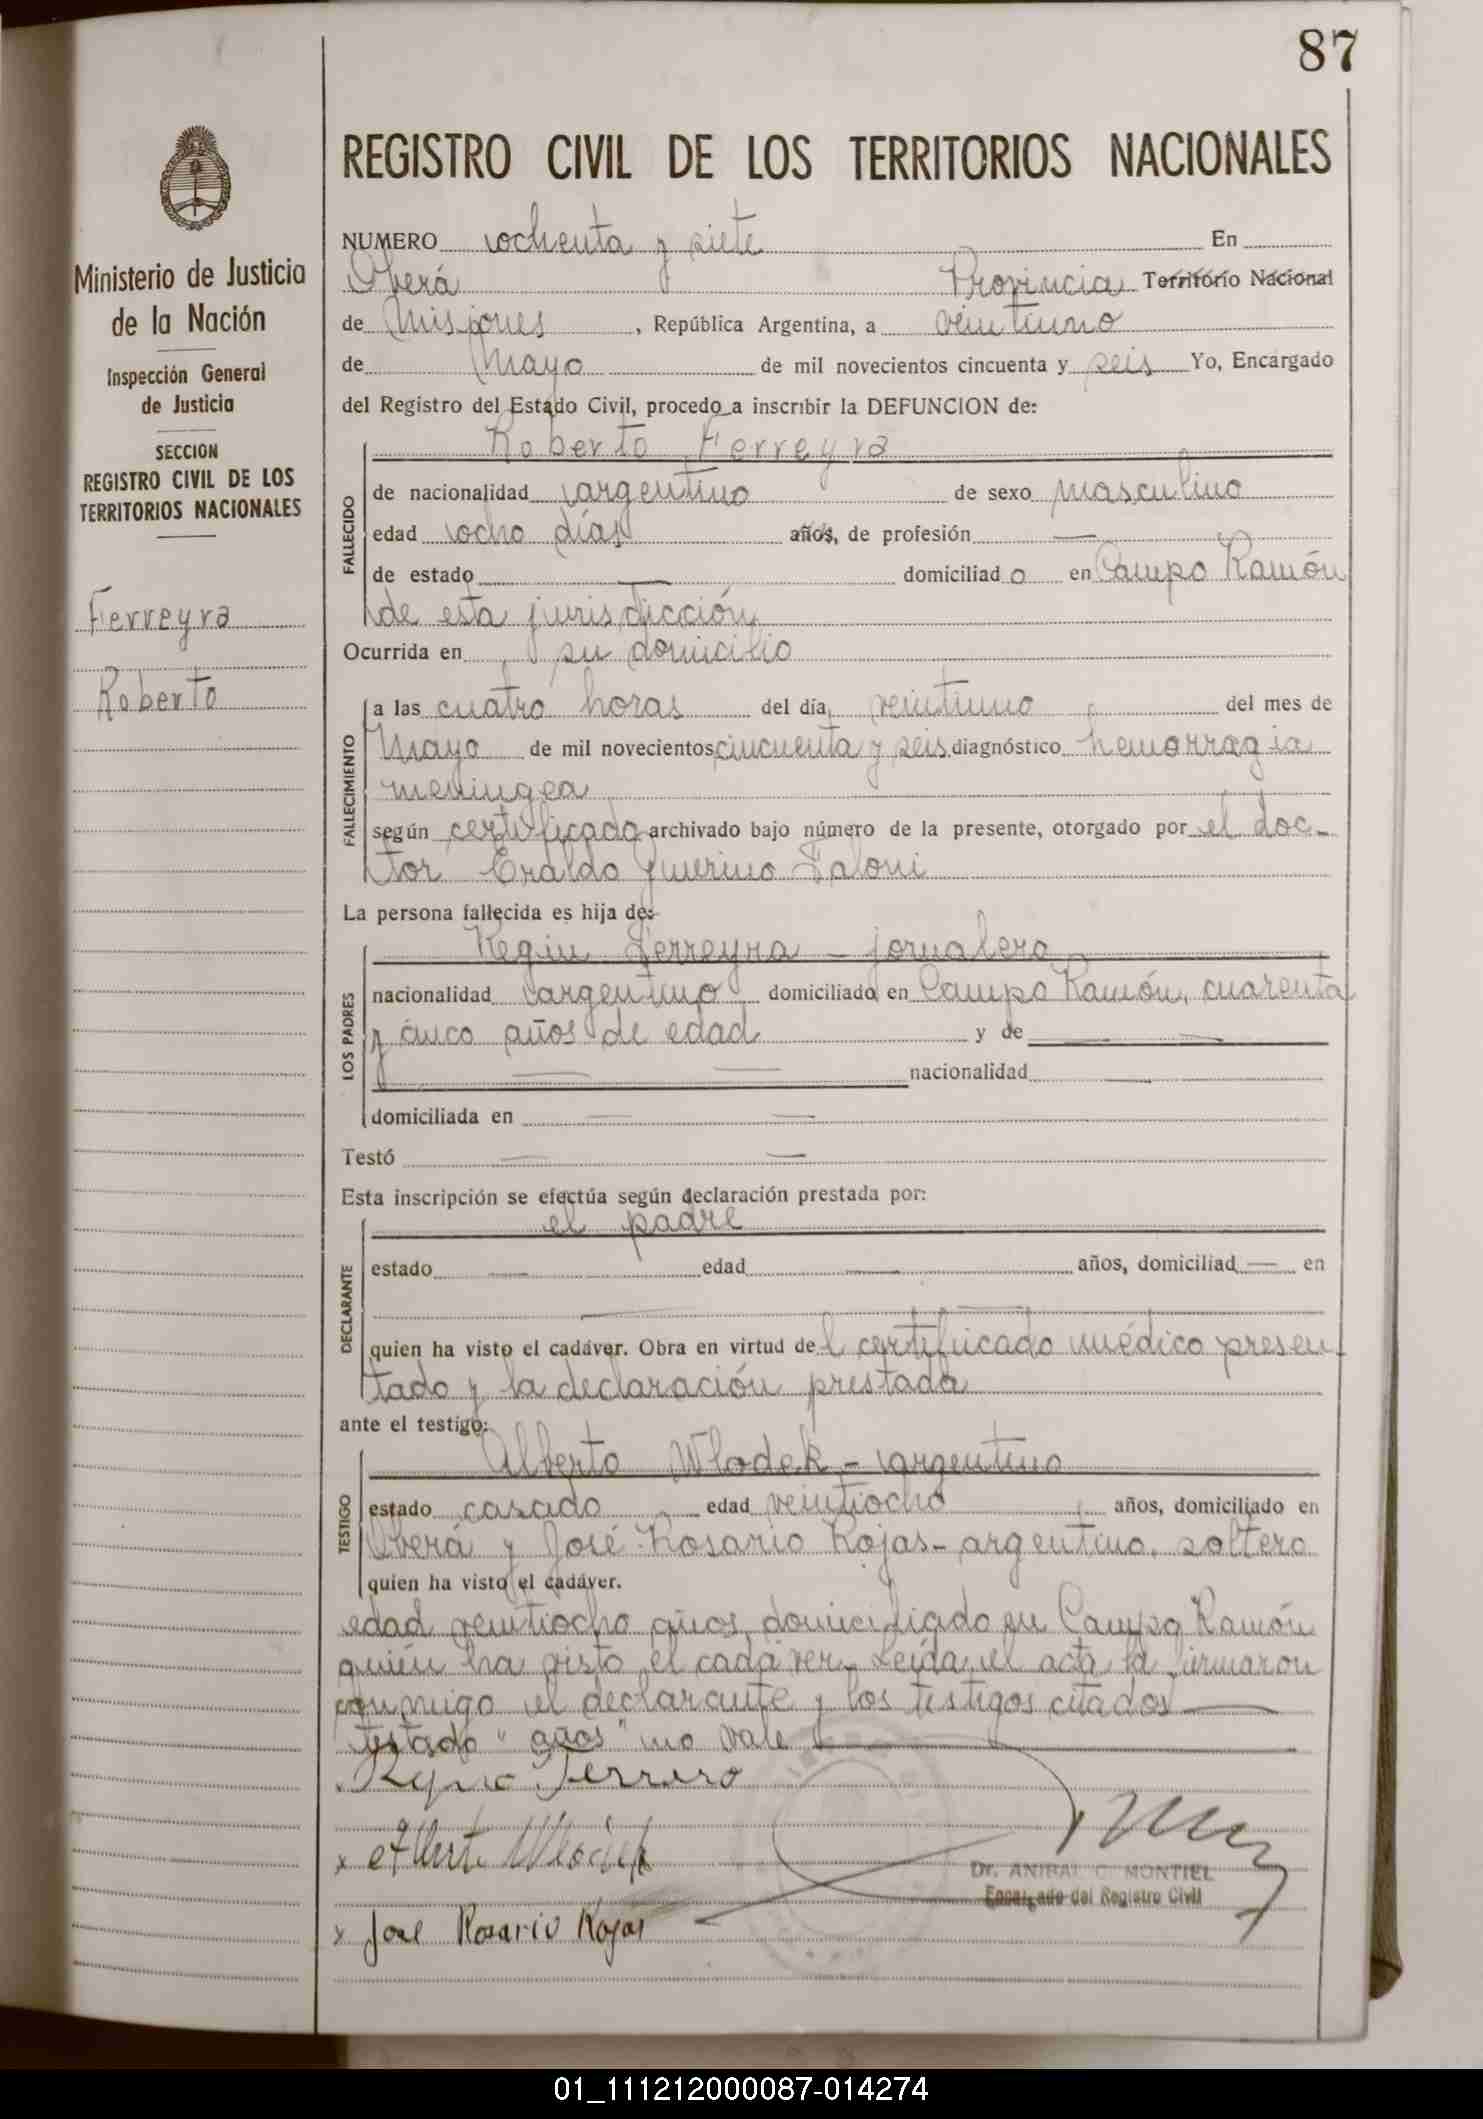 87
REGISTRO CIVIL DE LOS TERRITORIOS NACIONALES
Ministerio de Justicia
de la Nación
Inspección General
de Justicia
SECCION
REGISTRO CIVIL DE LOS
TERRITORIOS NACIONALES
Ferreyra
Roberto
NUMERO ochenta y siete En
Oberá Provincia Territorio Nacional
de Misiones, República Argentina, a veintiuno
de Mayo de mil novecientos cincuenta y seis Yo, Encargado
del Registro del Estado Civil, procedo a inscribir la DEFUNCION de:
Roberto Ferreyra
FALLECIDO
de nacionalidad argentino de sexo masculino
edad ocho días años, de profesión —
de estado — domiciliado en Campo Ramón
de esta jurisdicción
Ocurrida en su domicilio
FALLECIMIENTO
a las cuatro horas del día veintiuno del mes de
Mayo de mil novecientos cincuenta y seis diagnóstico hemorragia
meningea
según certificado archivado bajo número de la presente, otorgado por el doc-
tor Eraldo Faloni
La persona fallecida es hija de:
LOS PADRES
Ferreyra - jornalero
nacionalidad argentino domiciliado en Campo Ramón, cuarenta
y cinco años de edad y de — —
— — nacionalidad —
domiciliada en — —
Testó — —
Esta inscripción se efectúa según declaración prestada por:
el padre
DECLARANTE
estado — edad — años, domiciliad — en
— —
quien ha visto el cadáver. Obra en virtud del certificado médico presen-
tado y la declaración prestada
ante el testigo:
Alberto Wlodek - argentino
TESTIGO
estado casado edad veintiocho años, domiciliado en
Oberá y José Rosario Rojas - argentino, soltero
quien ha visto el cadáver.
edad veintiocho años, domiciliado en Campo Ramón
quién ha visto el cadáver. Leída el acta la firmaron
conmigo el declarante y los testigos citados —
testado "años" no vale —
Ferrero
x Alberto Wlodek
Dr. ANIBAL C. MONTIEL
Encargado del Registro Civil
x José Rosario Rojas
01_111212000087-014274